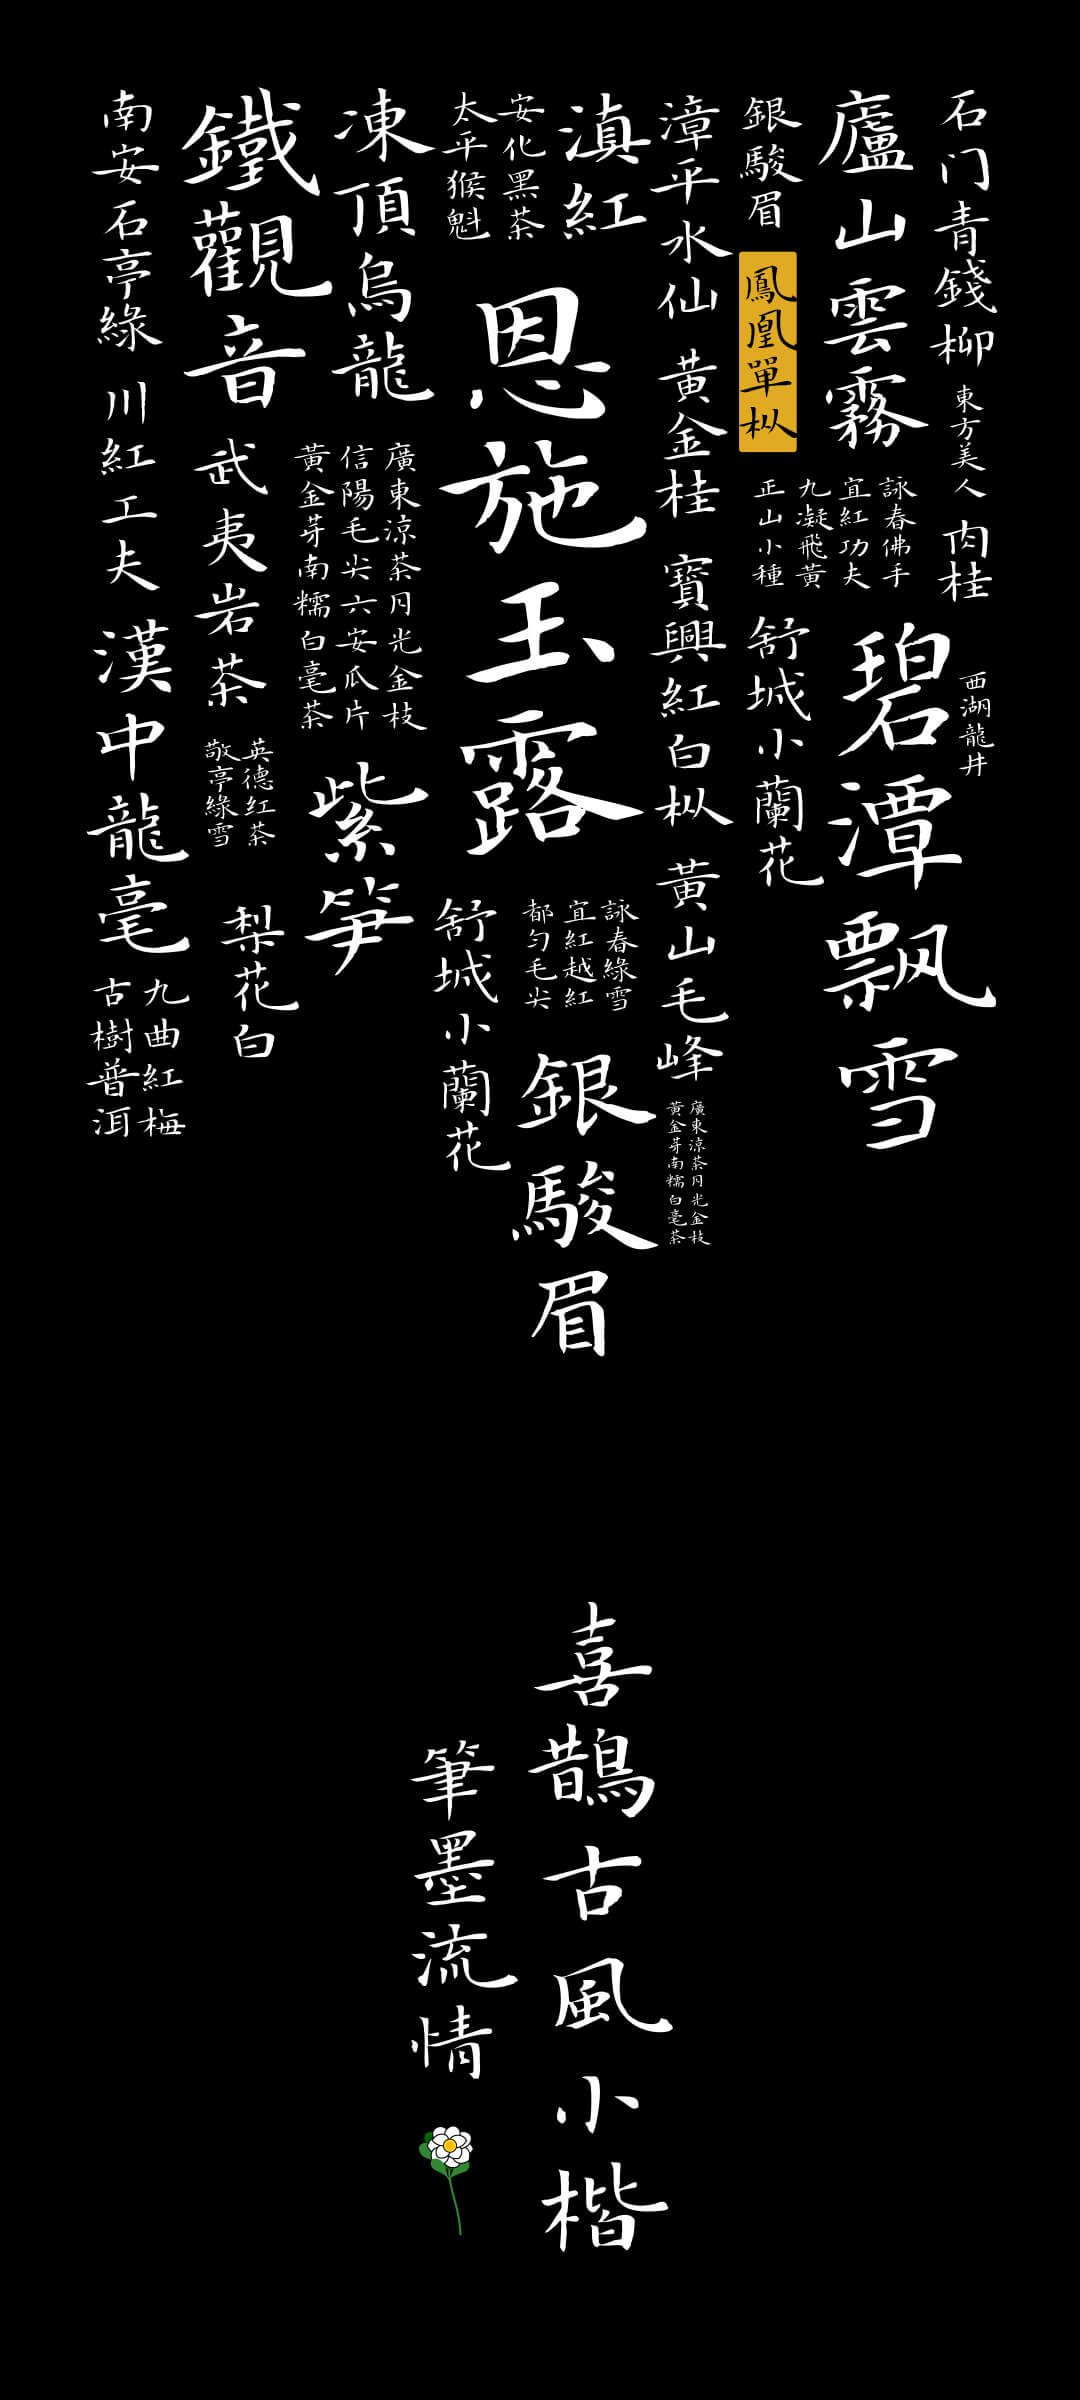 石门青錢柳
東方美人
肉桂
西湖龍井
廬山雲霧
詠春佛手
宜紅功夫
九凝飛黃
正山小種
碧潭飘雪
銀駿眉
鳳凰單枞
舒城小蘭花
漳平水仙
黃金桂
寶興紅白枞
黃山毛峰
廣東涼茶月光金枝
黃金芽南糯白毫茶
滇紅
安化黑茶
太平猴魁
恩施玉露
詠春綠雪
宜紅越紅
都勻毛尖
銀駿眉
舒城小蘭花
凍頂烏龍
廣東涼茶月光金枝
信陽毛尖六安瓜片
黃金芽南糯白毫茶
紫笋
鐵觀音
武夷岩茶
英德红茶
敬亭綠雪
梨花白
南安石亭綠
川紅工夫
漢中龍毫
九曲紅梅
古樹普洱
喜鵲古風小楷
筆墨流情